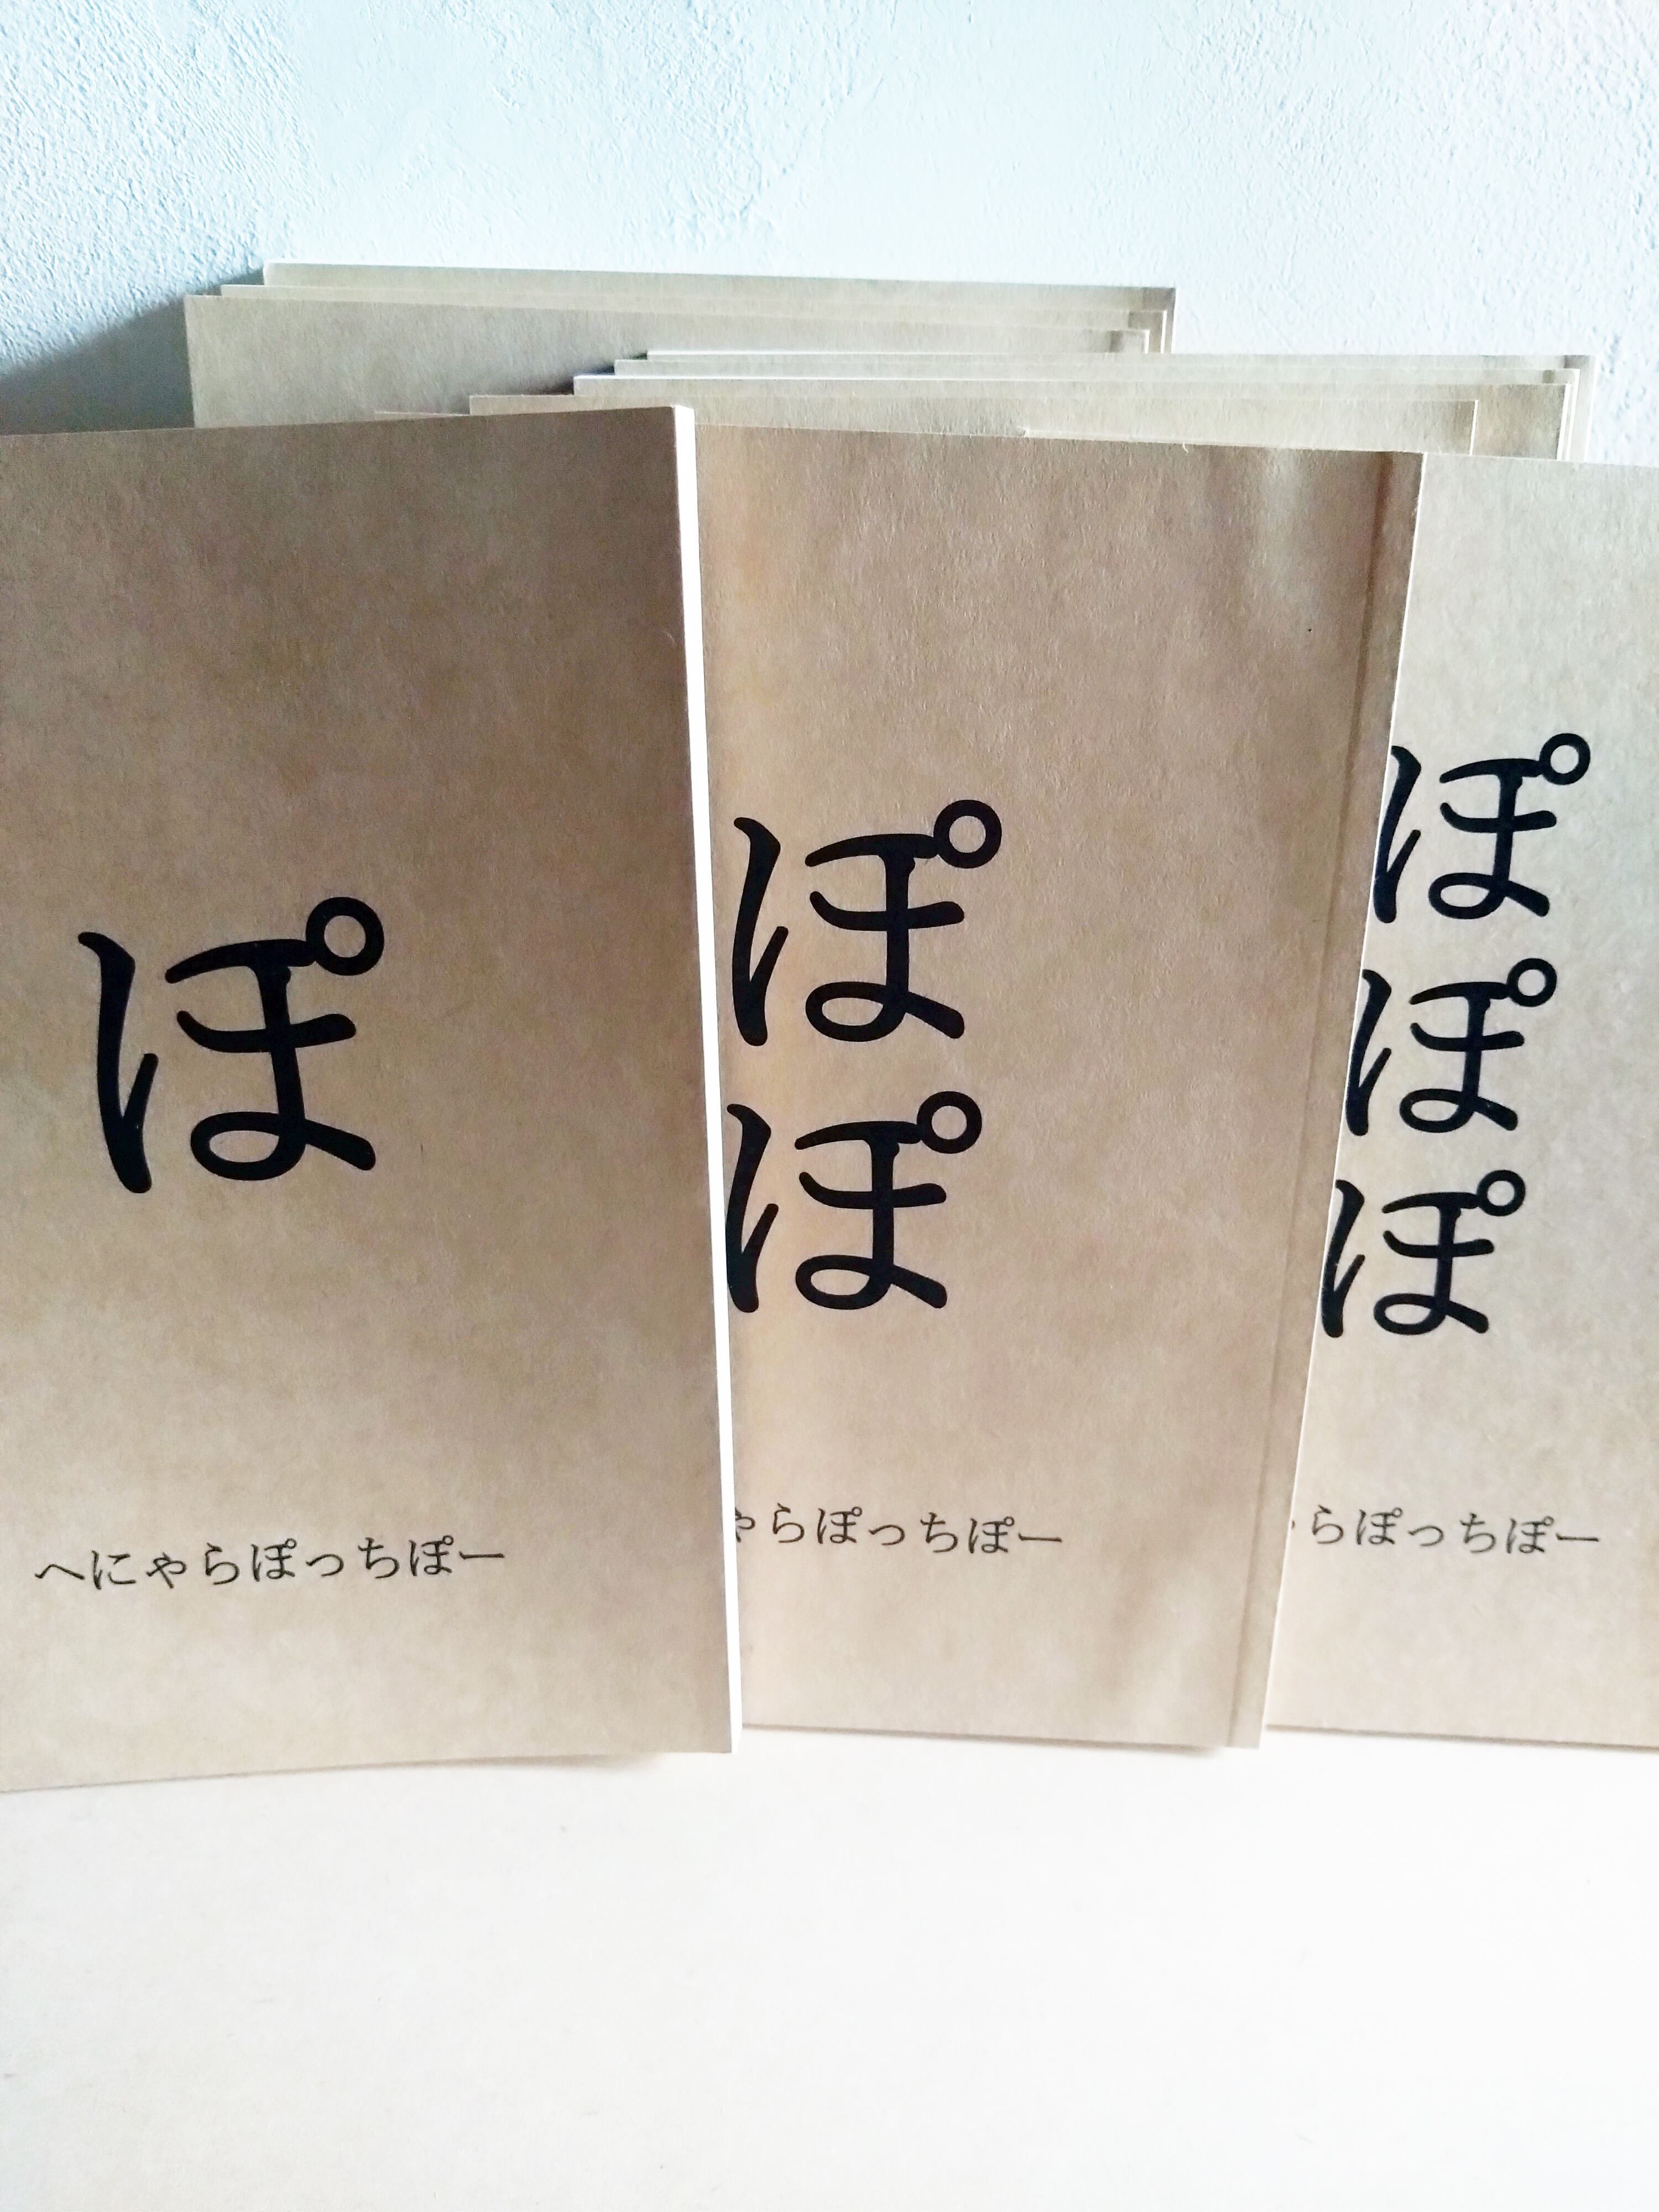 ぽ
へにゃらぽっちぽー
ぽ
ぽ
ゃらぽっちぽー
ぽ
ぽ
ぽ
らぽっちぽー